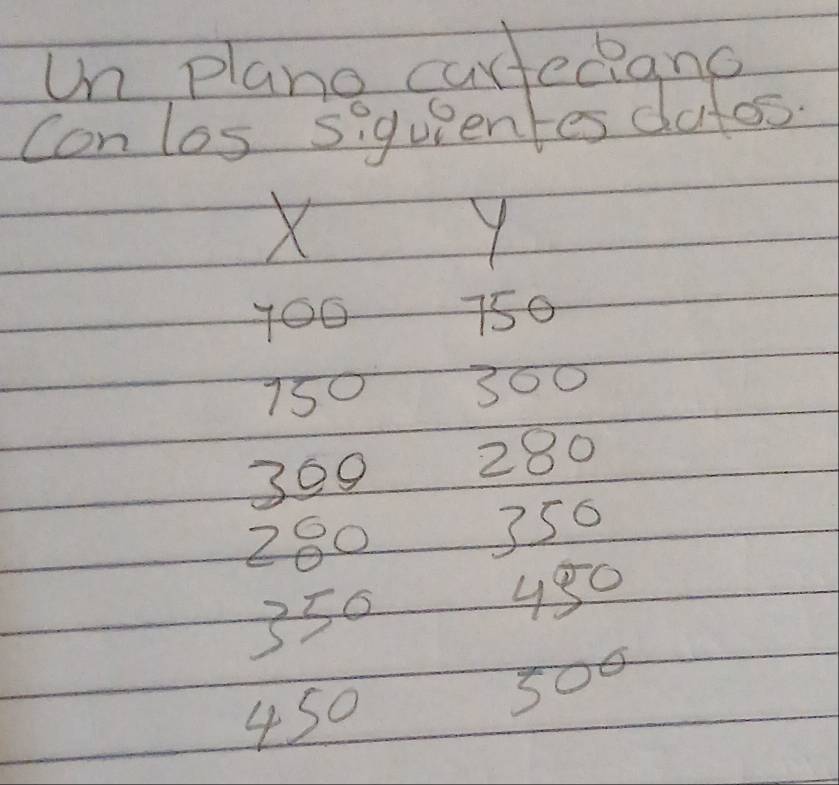 Un plano carteciano
con los siguientes datos.
X Y
100 150
150 300
300 280
280 350
350 450
450 500